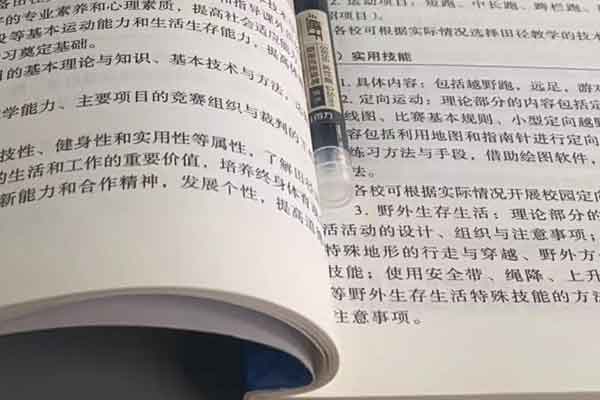 的专业素养和心理素质，提高社会适应能
等基本运动能力和生活生存能力，提高体
习奠定基础。
的基本理论与知识、基本技术与方法，
学能力、主要项目的竞赛组织与裁判的
技性、健身性和实用性等属性，了解
的生活和工作的重要价值，培养终身体育
新能力和合作精神，发展个性，提高
2. 运动项目：短跑、中长跑、跨栏跑、
项目）。
各校可根据实际情况选择田径教学的技术
）实用技能
1. 具体内容：包括越野跑，远足，游
2. 定向运动：理论部分的内容包括定
线图、比赛基本规则、小型定向越野
容包括利用地图和指南针进行定向
练习方法与手段，借助绘图软件，
法。
各校可根据实际情况开展校园定向
3. 野外生存生活：理论部分的
活活动的设计、组织与注意事项；
特殊地形的行走与穿越、野外方
技能；使用安全带、绳降、上升
等野外生存生活特殊技能的方法
注意事项。